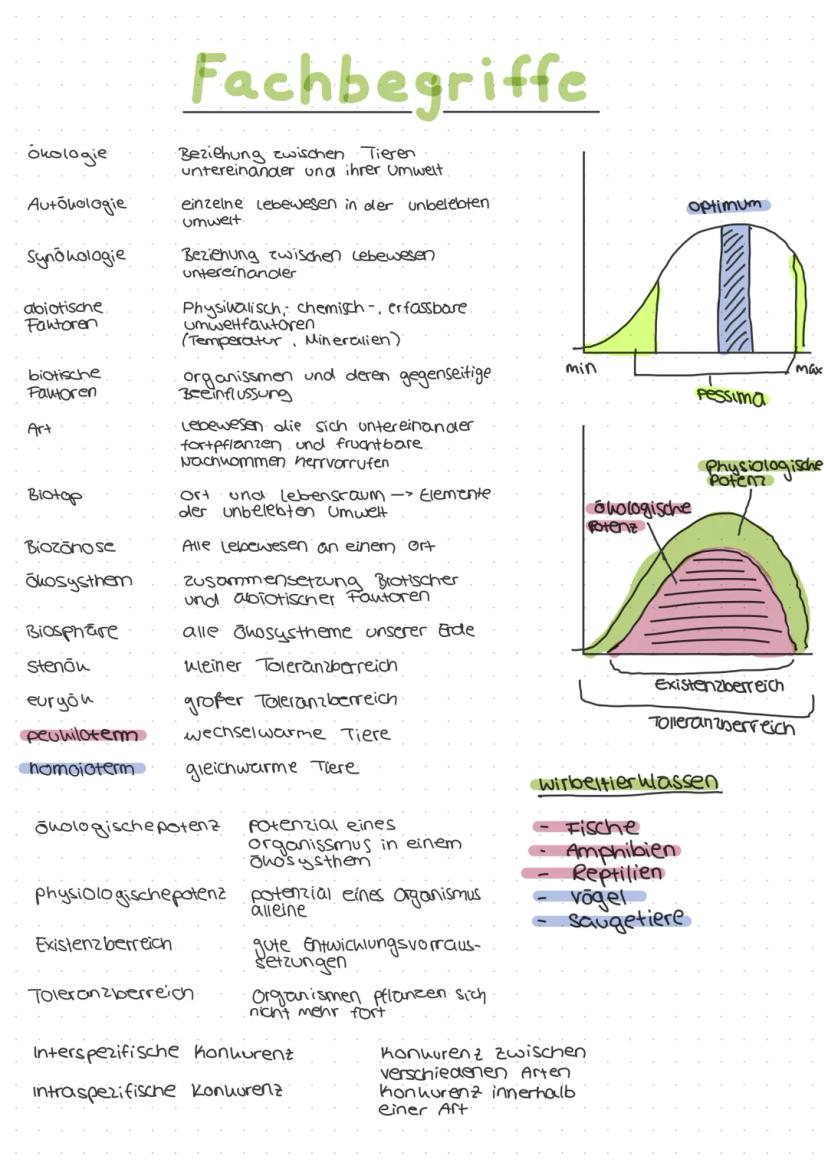 Fachbegriffe
Ökologie
Beziehung zwischen Tieren
untereinander und ihrer Umwelt
Autökologie
einzelne Lebewesen in der unbelebten
Umwelt
Synökologie
Beziehung zwischen Lebewesen
untereinander
abiotische
Faktoren
Physikalisch,- chemisch-, erfassbare
Umweltfaktoren
(Temperatur, Mineralien)
biotische
Faktoren
organissmen und deren gegenseitige
Beeinflussung
Art
Lebewesen die sich untereinander
fortpflanzen und fruchtbare
Nachkommen herrvorrufen
Biotop
Ort und Lebensraum → Elemente
der unbelebten Umwelt
Biozönose
Alle Lebewesen an einem Ort
Ökosysthem
zusammensetzung Biotischer
und abiotischer Faktoren
Biosphäre
alle Ökosystheme unserer Erde
stenök
kleiner Toleranzberreich
euryök
großer Toleranzberreich
peukiloterm
wechselwarme Tiere
homoioterm
gleichwarme Tiere
ökologischepotenz
Potenzial eines
organissmus in einem
Ökosysthem
physiologischepotenz
potenzial eines Organismus
alleine
Existenzberreich
gute Entwicklungsvorraus-
setzungen
Toleranzberreich
Organismen pflanzen sich
nicht mehr fort
Interspezifische Konkurenz
Konkurenz zwischen
verschiedenen Arten
Intraspezifische Konkurenz
Konkurenz innerhalb
einer Art
optimum
min
max
Pessima
Physiologische
Potenz
ökologische
Potenz
Existenzberreich
Tolleranzberreich
Wirbeltierklassen
- Fische
- Amphibien
- Reptilien
- Vögel
- Säugetiere